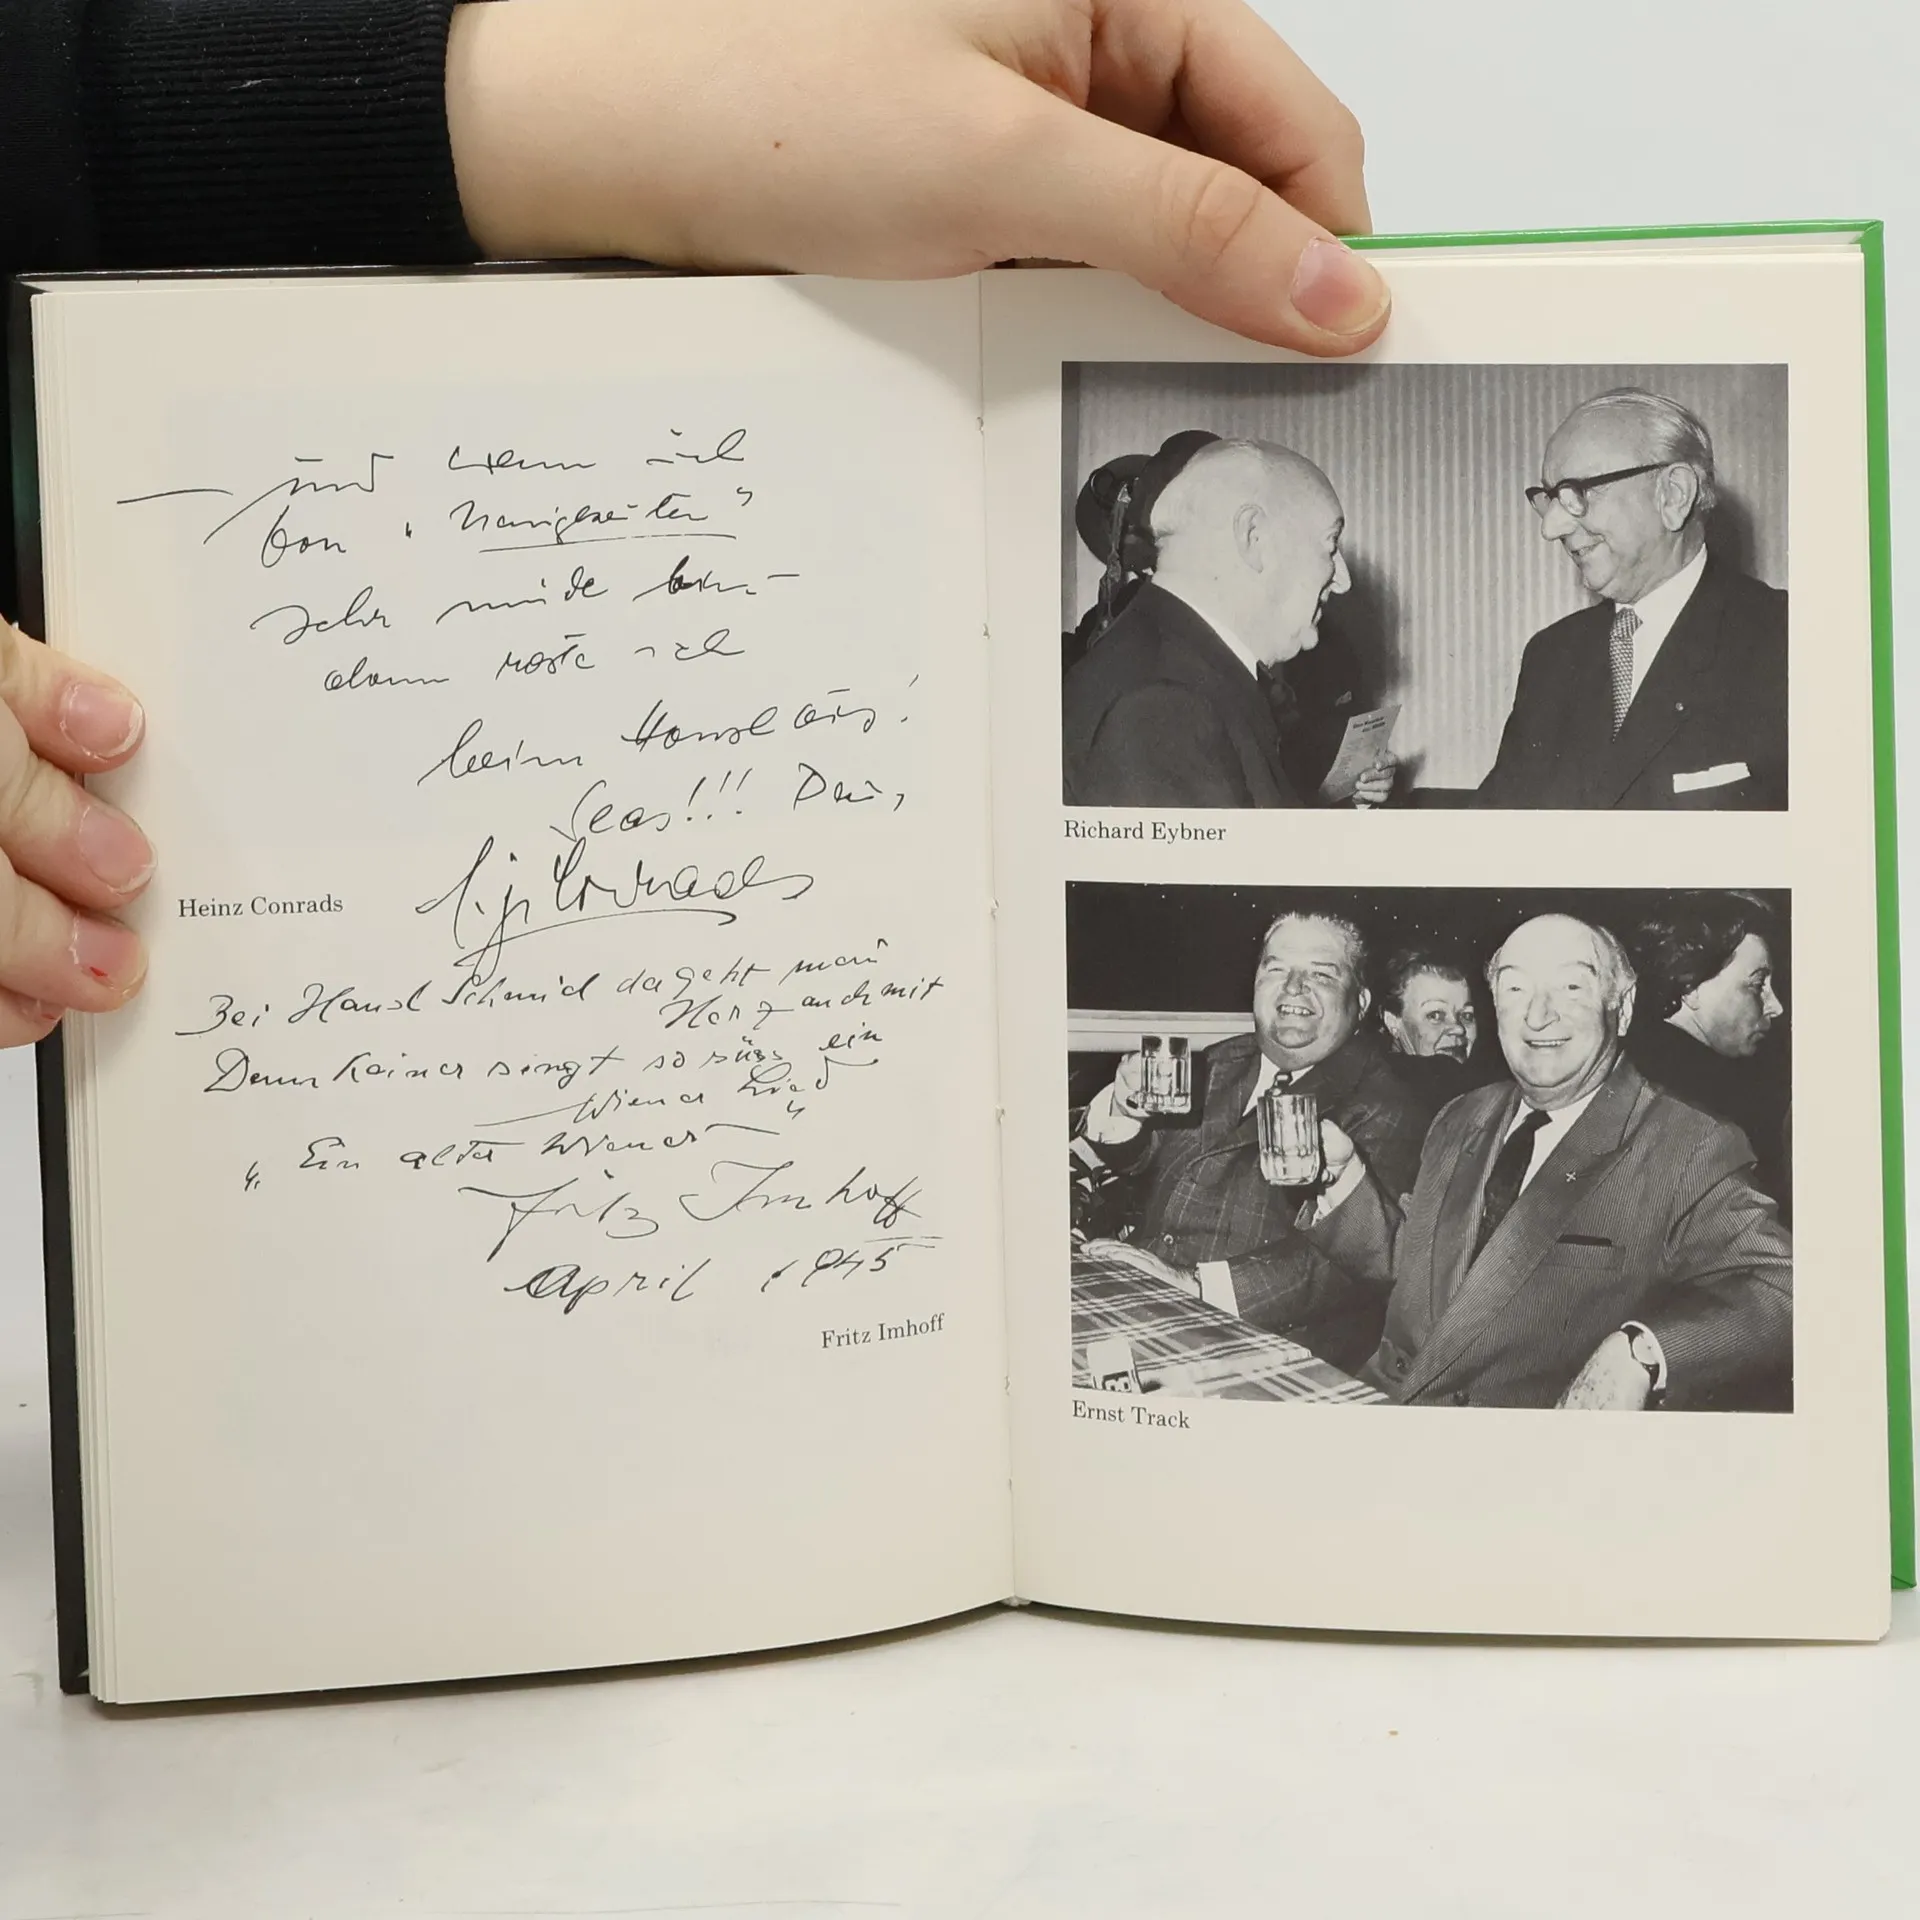 — und wenn ich
von "Neuigkeiten"
sehr müde bin –
dann raste ich
beim Hansl aus!
Seas!!! Dein,
Heinz Conrads
Bei Hansl Schmid da geht mein
Herz auch mit
Denn keiner singt so süss ein
Wiener Lied
"Ein alter Wiener"
Fritz Imhoff
April 1945
Fritz Imhoff
Richard Eybner
Ernst Track